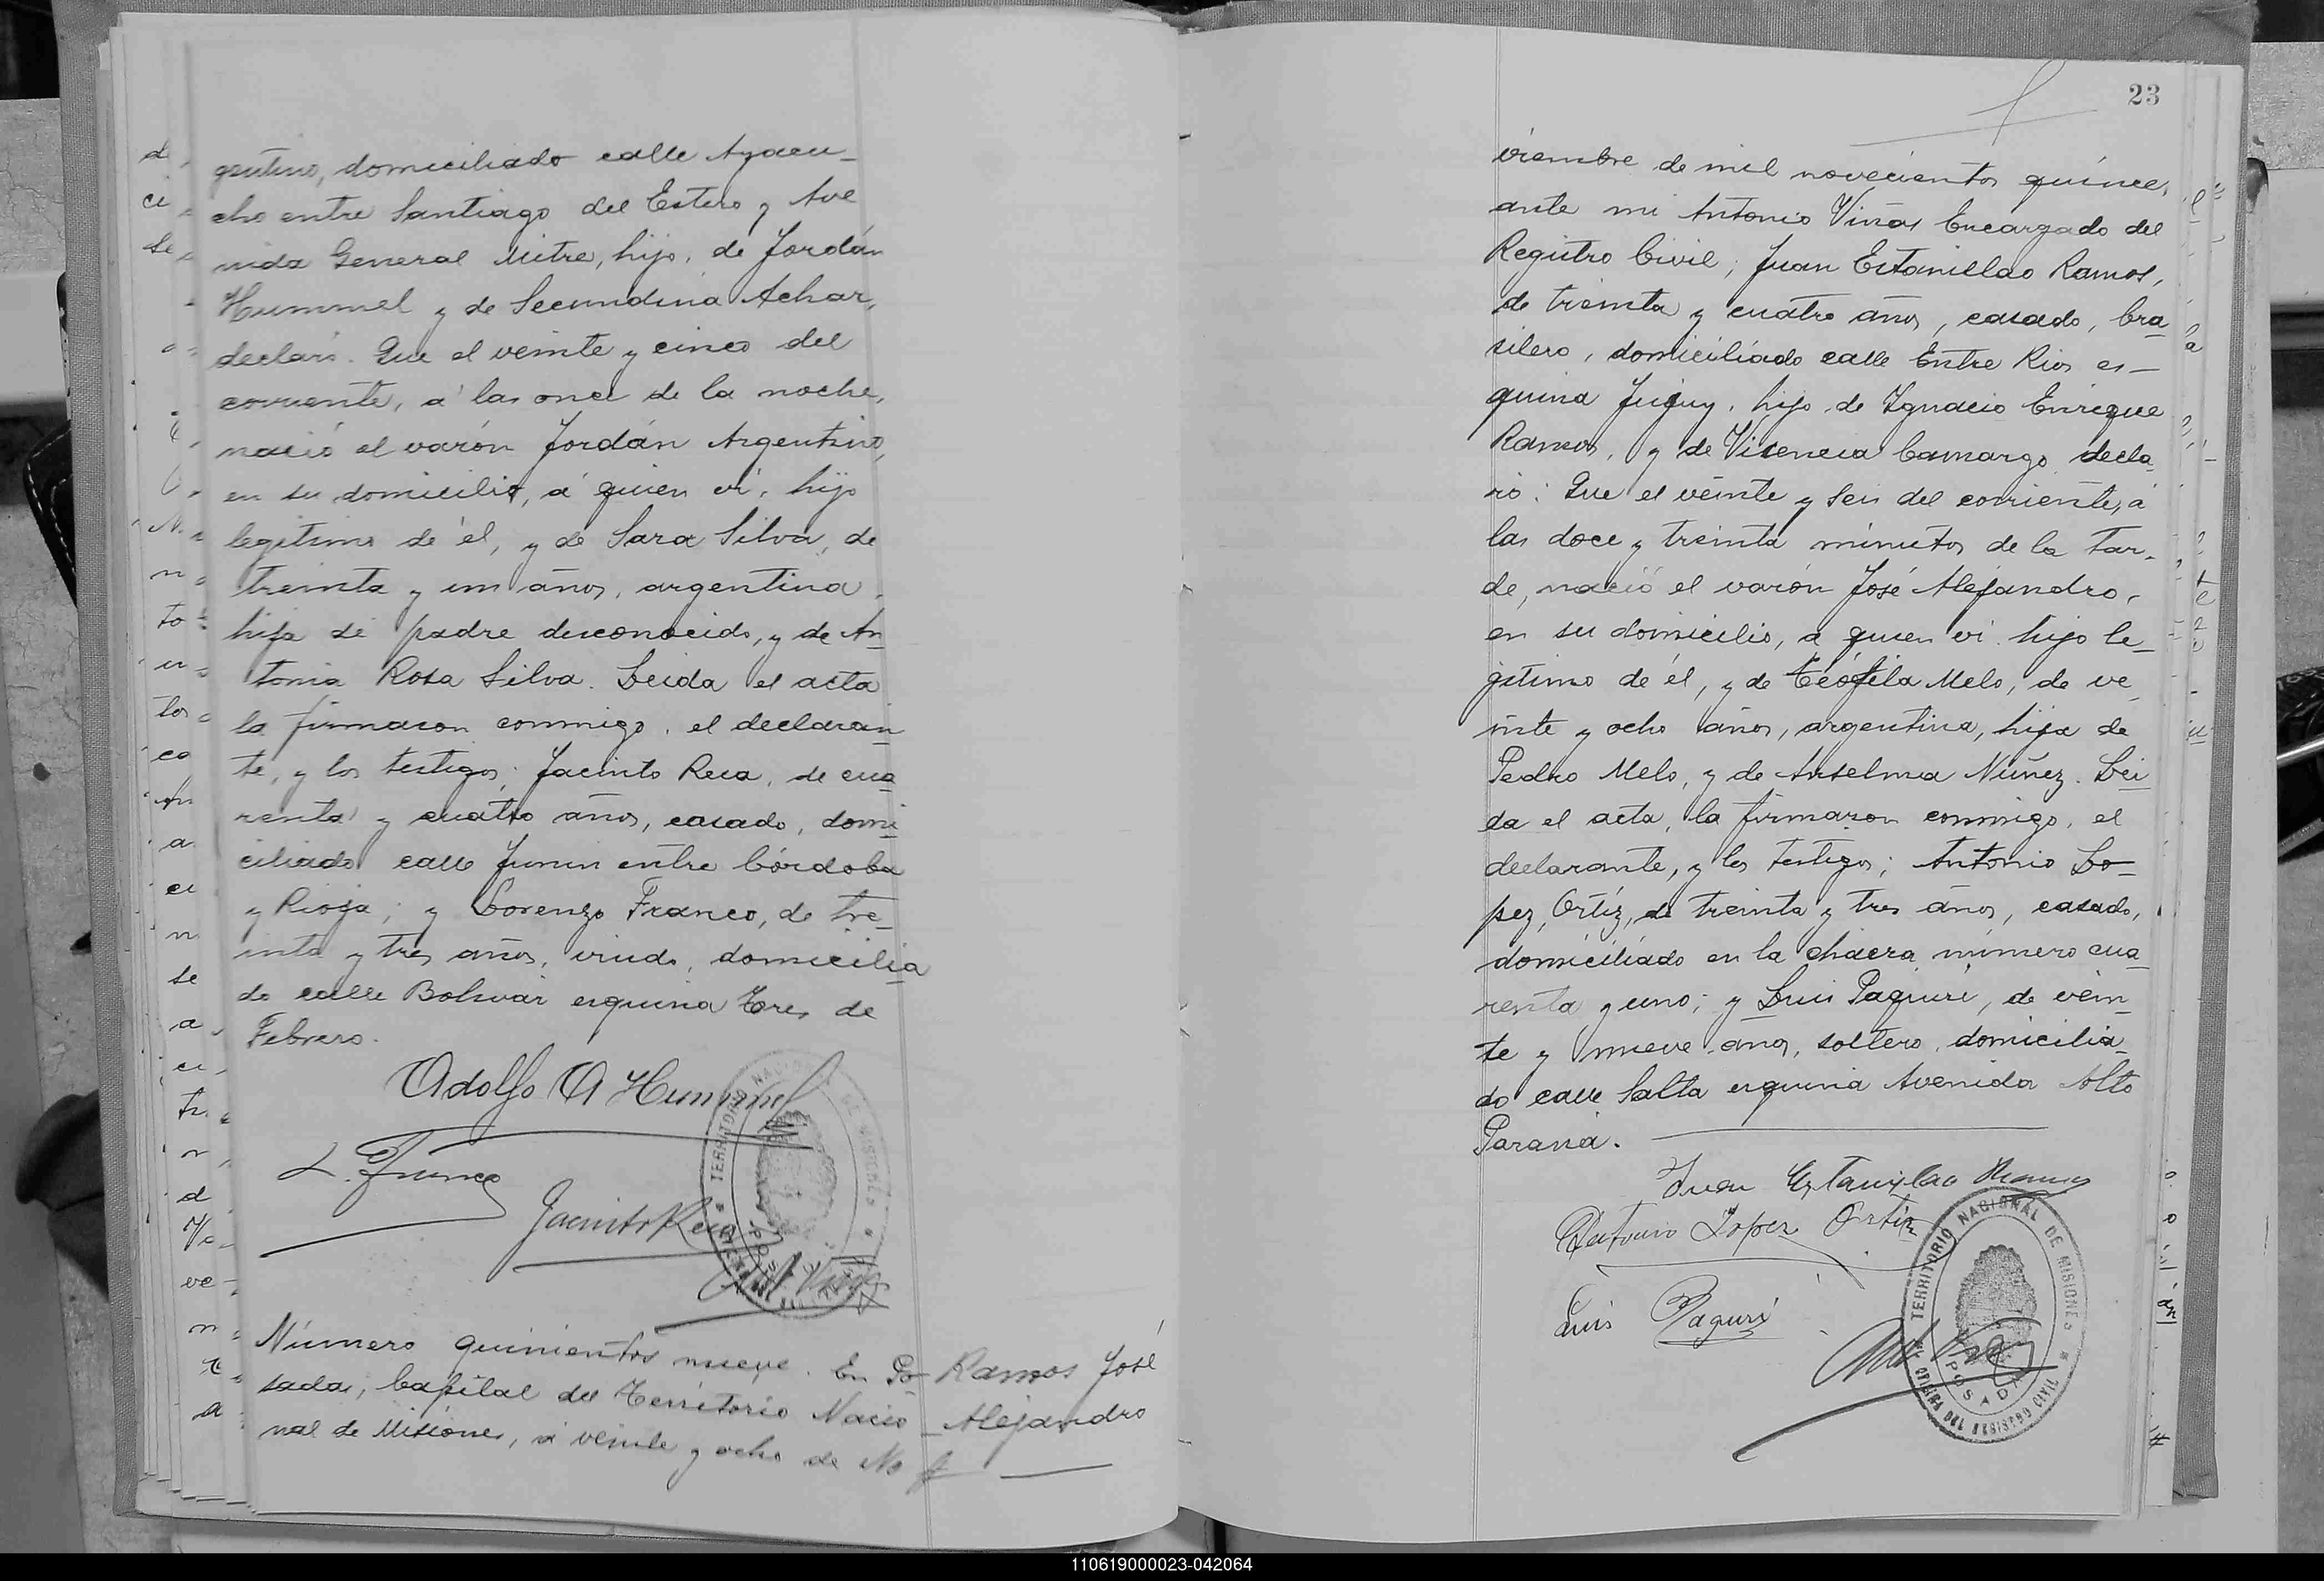 gentino, domiciliado calle Ayacu-
cho entre Santiago del Estero y Ave
nida General Mitre, hijo, de Jordán
Hummel y de Secundina Achar,
declaró. Que el veinte y cinco del
corriente, á las once de la noche,
nació el varón Jordán Argentino,
en su domicilio, á quien ví, hijo
legítimo de él, y de Sara Silva, de
treinta y un años, argentina,
hija de padre desconocido, y de An
tonia Rosa Silva. Leida el acta
la firmaron conmigo, el declaran
te, y los testigos; Jacinto Reca, de cua
renta y cuatro años, casado, domi
ciliado calle Junin entre Córdoba
y Rioja; y Lorenzo Franco, de tre_
inta y tres años, viudo, domicilia
do calle Bolivar esquina Tres de
Febrero.
Adolfo A Hummel
L. Franco
Jacinto Reca
TERRITORIO NACIONAL DE MISIONES
Número quinientos nueve. En Po
sadas, Capital del Territorio Nacio
nal de Misiones, á veinte y ocho de No
Ramos José
Alejandro
23
viembre de mil novecientos quince,
ante mi Antonio Viñas Encargado del
Registro Civil; Juan Estanillao Ramos,
de treinta y cuatro años, casado, bra
silero, domiciliado calle Entre Rios es-
quina Jujuy, hijo de Ygnacio Enrique
Ramos, y de Visencia Camargo, decla
ró: Que el veinte y seis del corriente, á
las doce y treinta minutos de la tar-
de, nació el varón José Alejandro,
en su domicilio, a quien ví. hijo le_
gitimo de él, y de Teófila Melo, de ve
inte y ocho años, argentina, hija de
Pedro Melo, y de Anselma Núñez. Lei
da el acta, la firmaron conmigo, el
declarante, y los testigos; Antonio Lo=
pez, Ortíz, de treinta y tres años, casado,
domiciliado en la chacra número cua_
renta y uno; y Luis Paquiri, de vein_
te y nueve años, soltero, domicilia_
do calle Salta esquina Avenida Alto
Paraná.
Juan Estanislao Ramos
Antonio Lopez Ortiz
Luis Paguri
TERRITORIO NACIONAL DE MISIONES
OFICINA DEL REGISTRO CIVIL
POSADAS
110619000023-042064